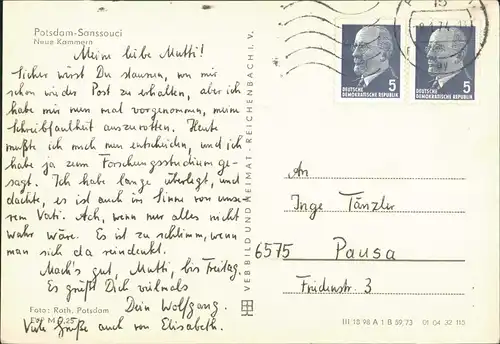 Potsdam-Sanssouci
Neue Kammern
Meine liebe Mutti!
Sicher wirst Du staunen, von mir
schon wieder Post zu erhalten, aber ich
habe mir nun mal vorgenommen, meine
Schreibfaulheit auszurotten. Heute
mußte ich mich nun entscheiden, und ich
habe ja zum Forschungsstudium ge-
sagt. Ich habe lange überlegt, und
dachte, es ist auch im Sinne von unse-
rem Vati. Ach, wenn nur alles nicht
wahr wäre. Es ist zu schlimm, wenn
man sich da reindenkt.
Mach's gut, Mutti, bis Freitag.
Es grüßt Dich vielmals
Dein Wolfgang.
Viele Grüße auch von Elisabeth.
Foto: Roth, Potsdam
EVP M 0,25
VEB BILD UND HEIMAT · REICHENBACH I. V.
15
5
DEUTSCHE
DEMOKRATISCHE REPUBLIK
5
DEUTSCHE
DEMOKRATISCHE REPUBLIK
An
Inge Tänzler
6575 Pausa
Friedenstr. 3
III 18 98 A 1 B 59/73 01 04 32 115